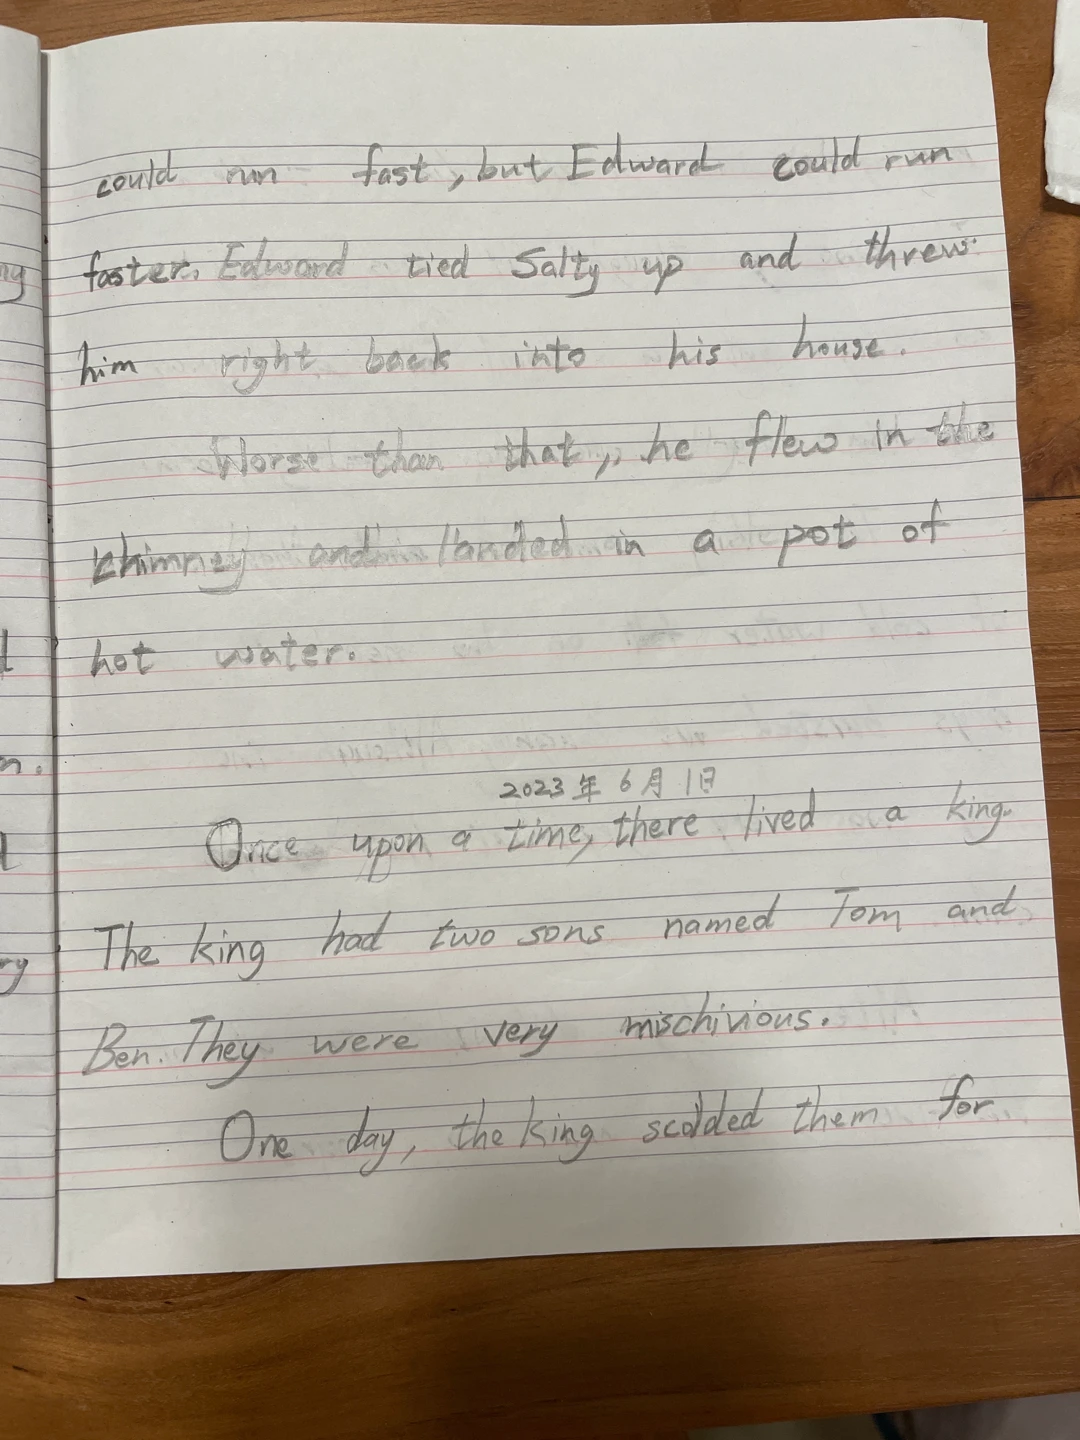 could run fast, but Edward could run
faster. Edward tied Salty up and threw
him right back into his house.
Worse than that, he flew in the
chimney and landed in a pot of
hot water.
2023年6月1日
Once upon a time, there lived a king.
The king had two sons named Tom and
Ben. They were very mischivious.
One day, the king scolded them for